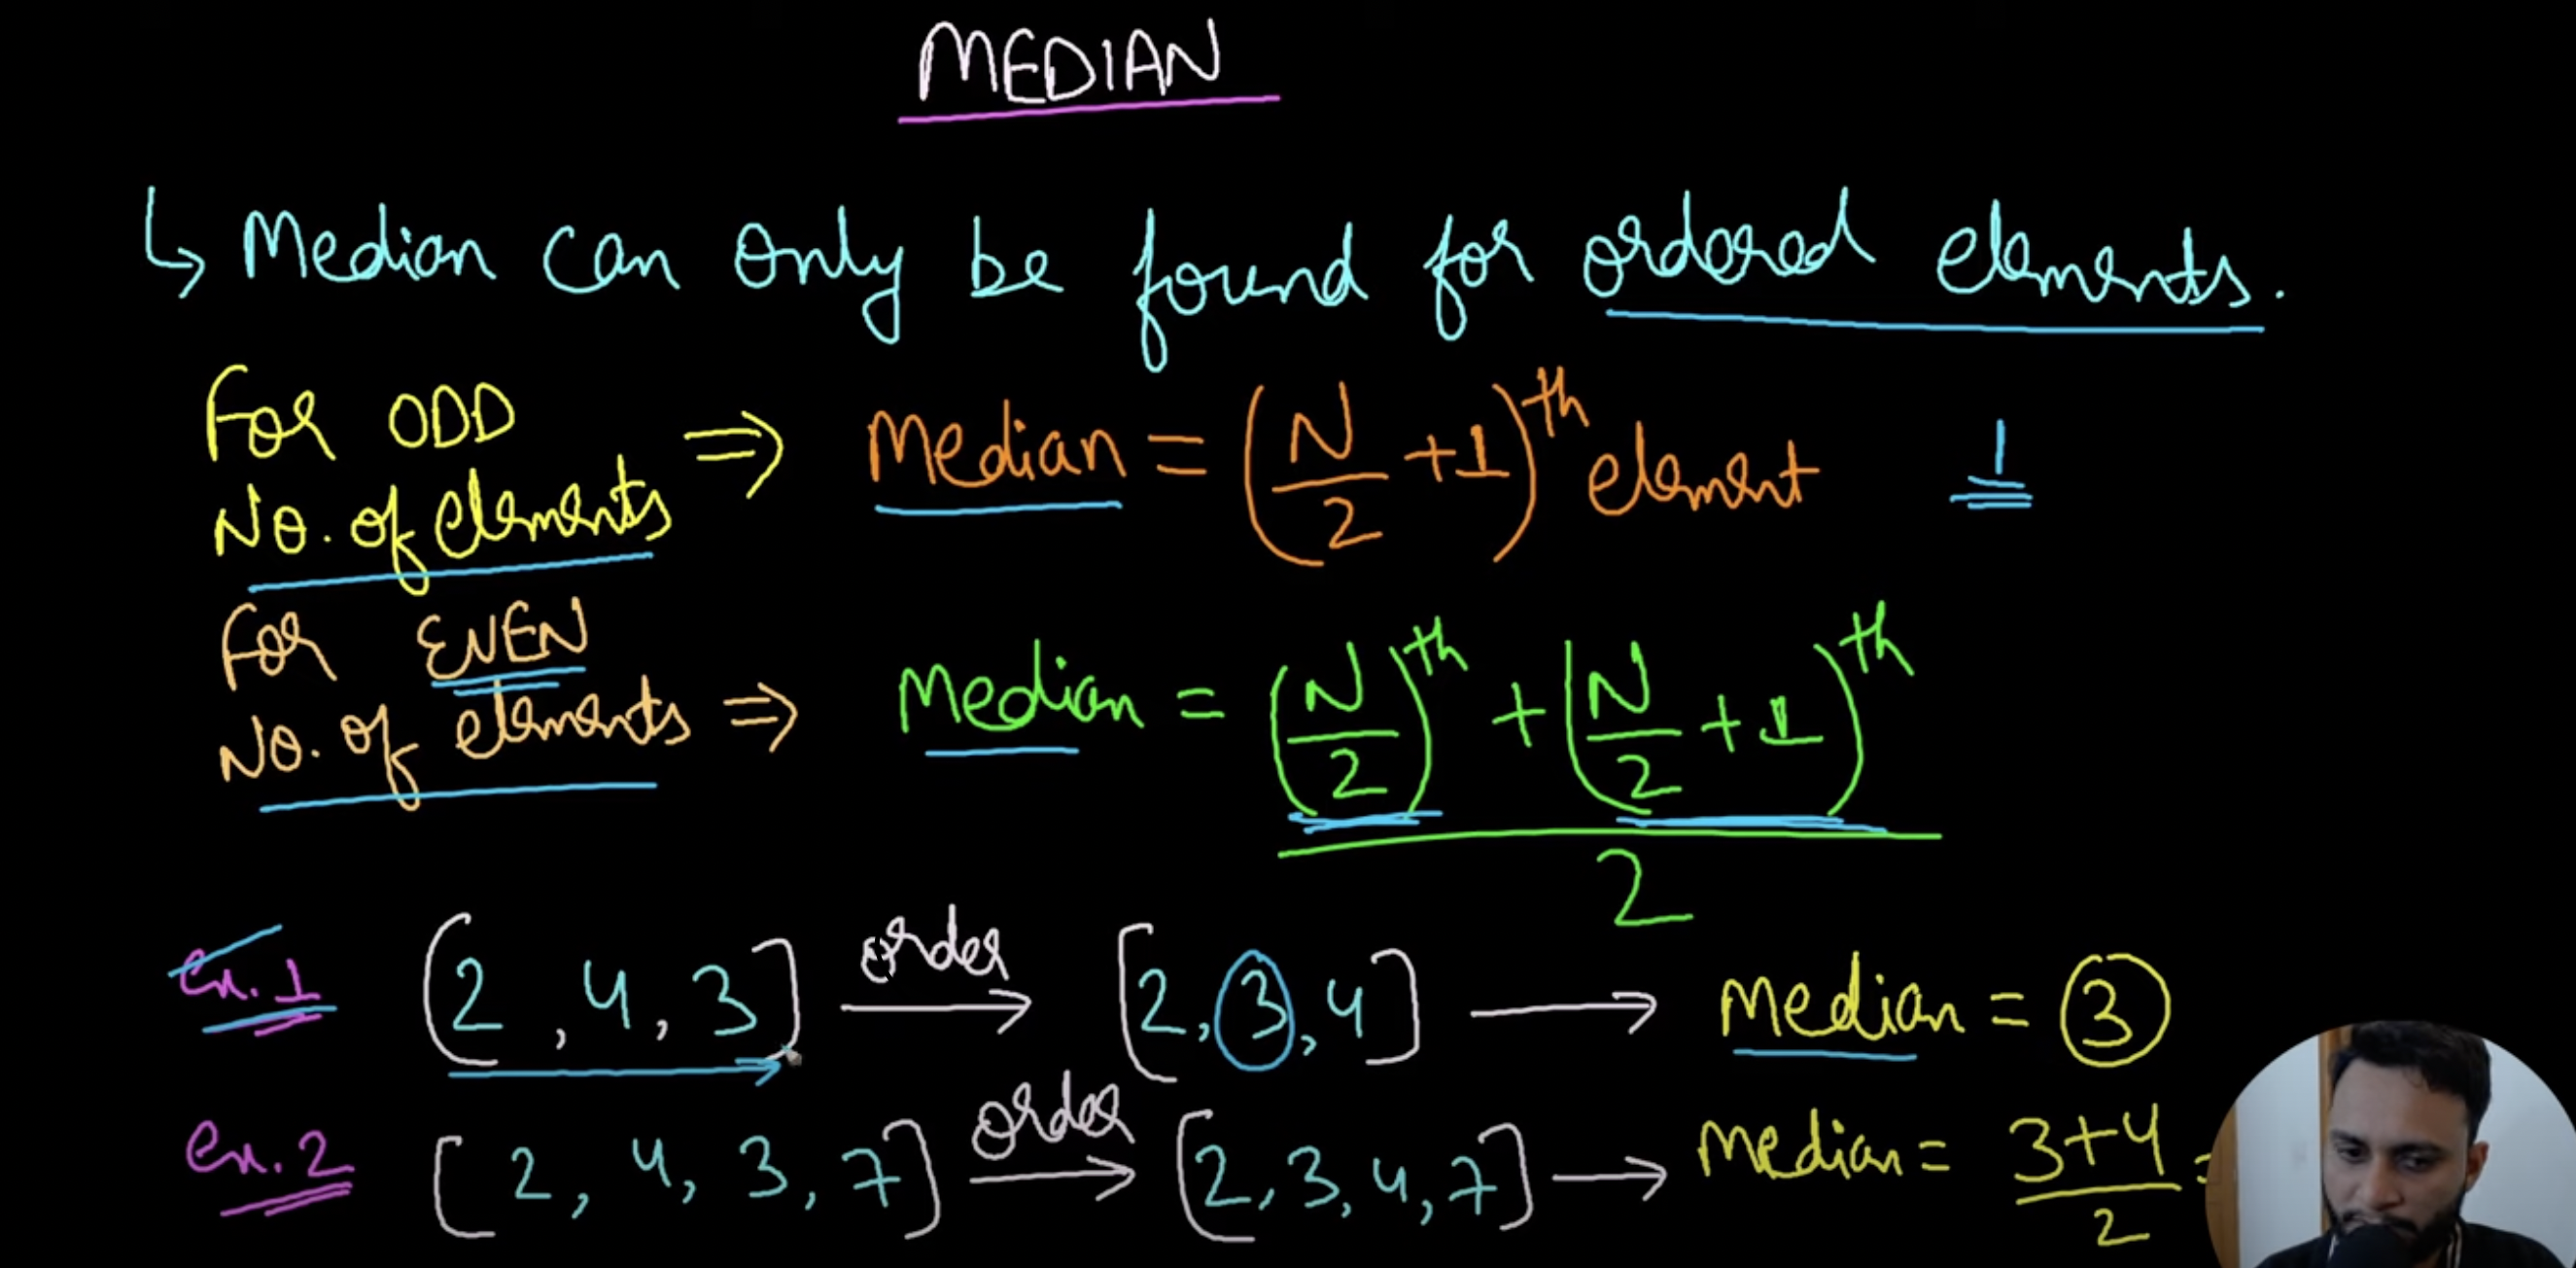 MEDIAN
↳ Median can only be found for ordered elements.
For ODD
No. of elements ⇒ Median = (N/2 + 1)th element 1
For EVEN
No. of elements ⇒ Median = ((N/2)th + (N/2 + 1)th) / 2
ex.1 [2, 4, 3] order → [2, 3, 4] → Median = 3
ex.2 [2, 4, 3, 7] order → [2, 3, 4, 7] → Median = (3+4)/2 =